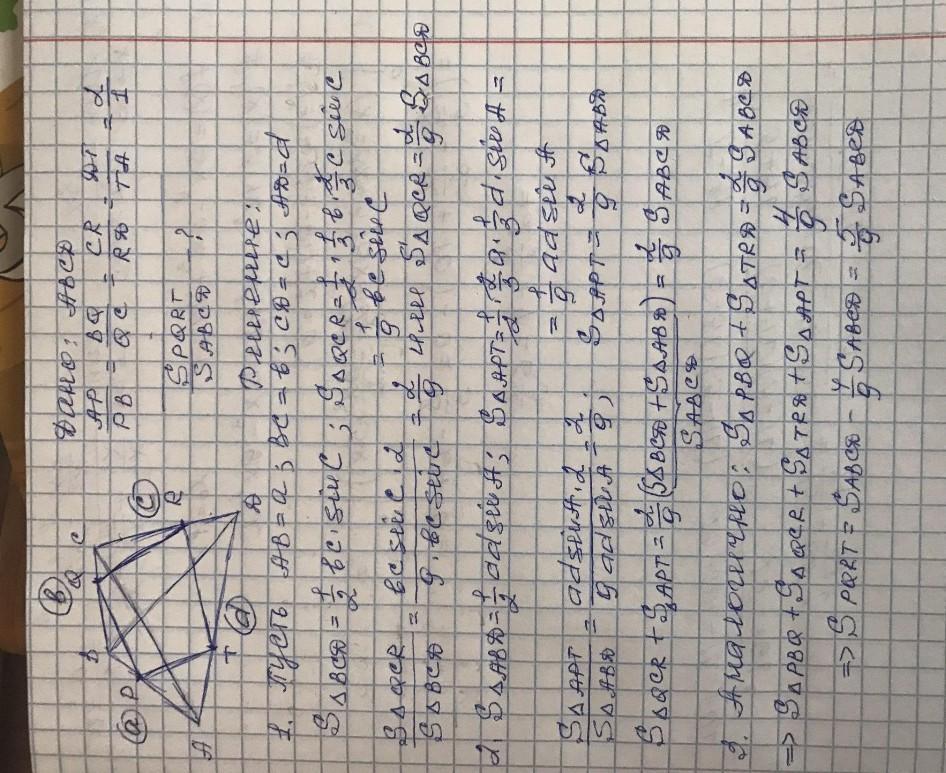 Дано: ABCD
AP/PB = BQ/QC = CR/RD = DT/TA = 2/1
S PQRT / S ABCD - ?
B Q C R D T A P
ⓐ ⓑ ⓒ ⓓ
Решение:
1. Пусть AB=a; BC=b; CD=c; AD=d
S△BCD = 1/2 bc·sinC; S△QCR = 1/2·1/3 b·2/3 c sinC
= 1/9 bc sinC
S△QCR / S△BCD = bc sinC·2 / 9·bc sinC = 2/9 или S△QCR = 2/9 S△BCD
2. S△ABD = 1/2 ad sinA; S△APT = 1/2·2/3 a·1/3 d·sinA =
= 1/9 ad sinA
S△APT / S△ABD = ad sinA·2 / 9 ad sinA = 2/9; S△APT = 2/9 S△ABD
S△QCR + S△APT = 2/9 (S△BCD + S△ABD) = 2/9 S ABCD
S ABCD
2. Аналогично: S△PBQ + S△TRD = 2/9 S ABCD
=> S△PBQ + S△QCR + S△TRD + S△APT = 4/9 S ABCD
=> S PQRT = S ABCD - 4/9 S ABCD = 5/9 S ABCD